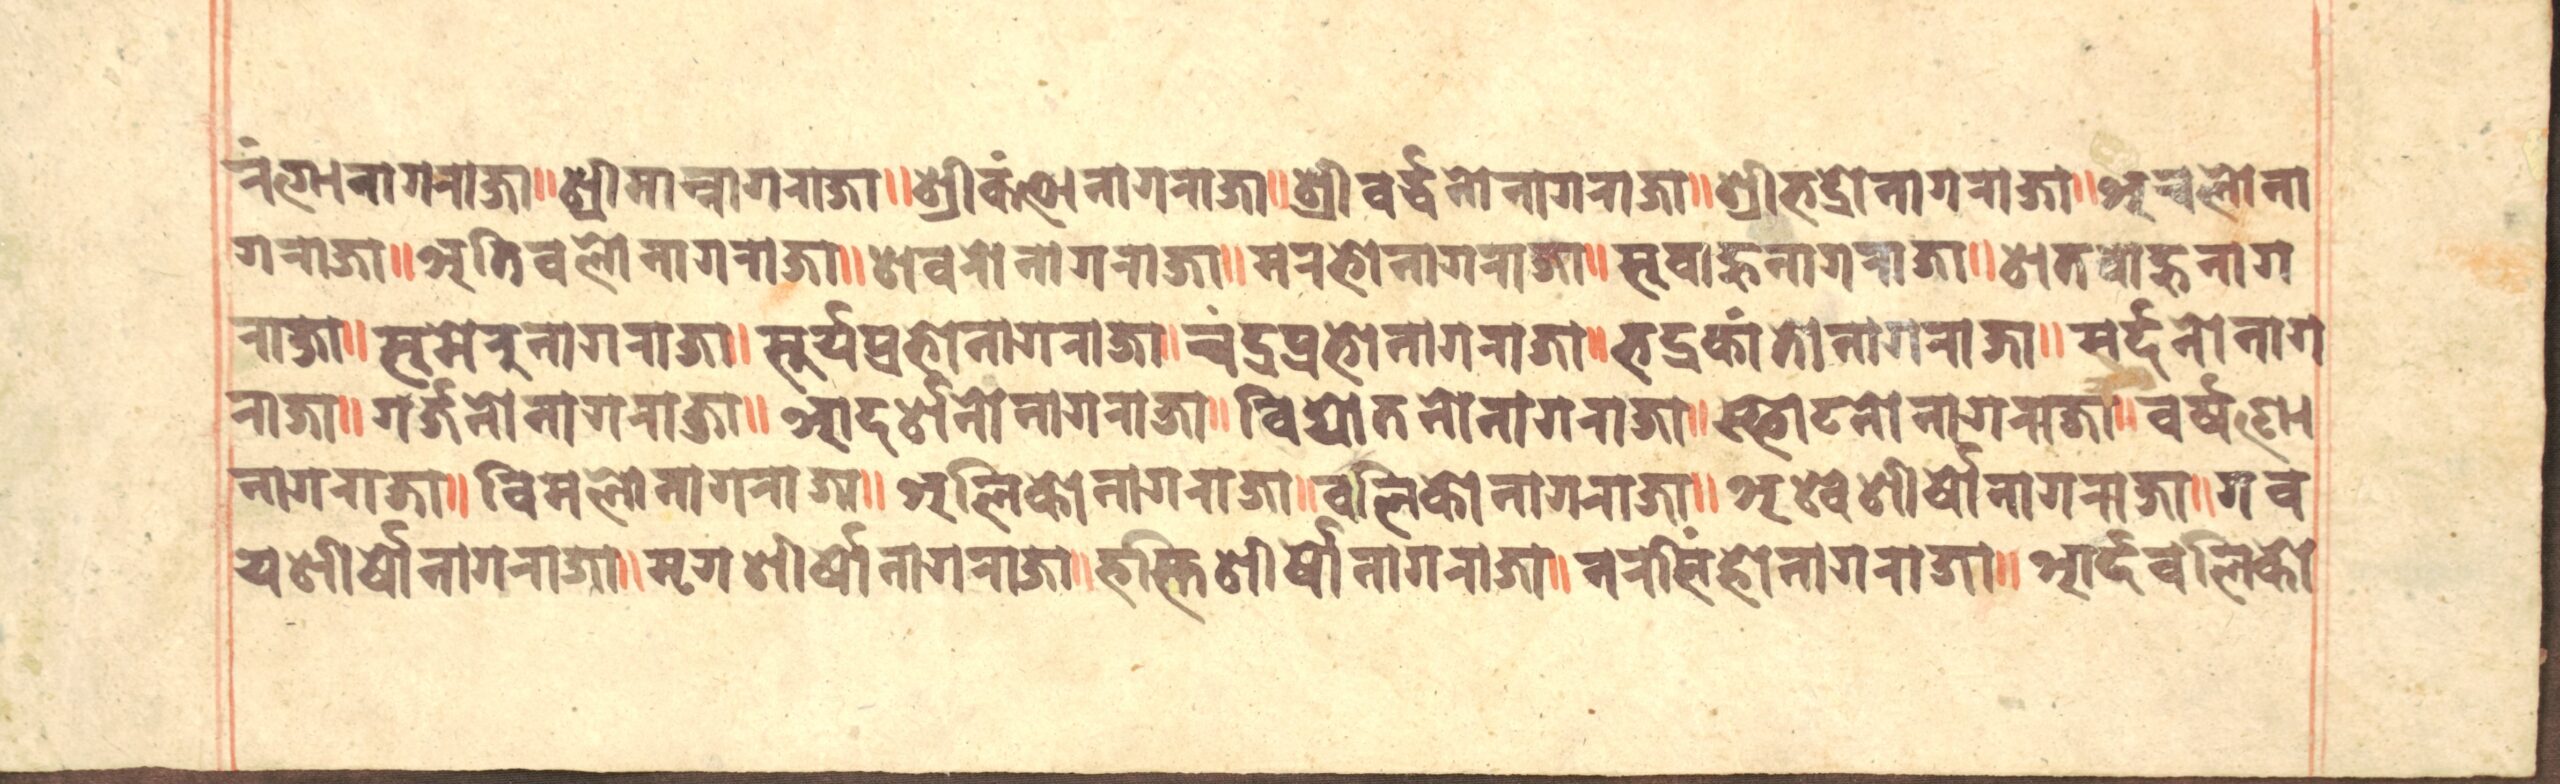 नंगो नागराजा॥श्रीमान्नागराजा॥श्रीकंठो नागराजा॥श्रीवर्द्धनो नागराजा॥श्रीभद्रो नागराजा॥अवलो ना
गराजा॥अतिवलो नागराजा॥शवरो नागराजा॥मरभो नागराजा॥सूवाहु नागराजा॥शतवाहु नाग
राजा॥सूमेरु नागराजा॥सूर्यप्रभो नागराजा॥चंद्रप्रभो नागराजा॥भद्रकांतो नागराजा॥मर्दनो नाग
राजा॥गर्जनो नागराजा॥आदर्शनो नागराजा॥विद्योतनो नागराजा॥स्फोटनो नागराजा॥वर्षणो
नागराजा॥विमलो नागराजा॥अलिको नागराजा॥वलिको नागराजा॥अश्वशीर्षो नागराजा॥गव
यशीर्षो नागराजा॥मृगशीर्षो नागराजा॥हस्तिशीर्षो नागराजा॥नरसिंहो नागराजा॥आर्दवलिको